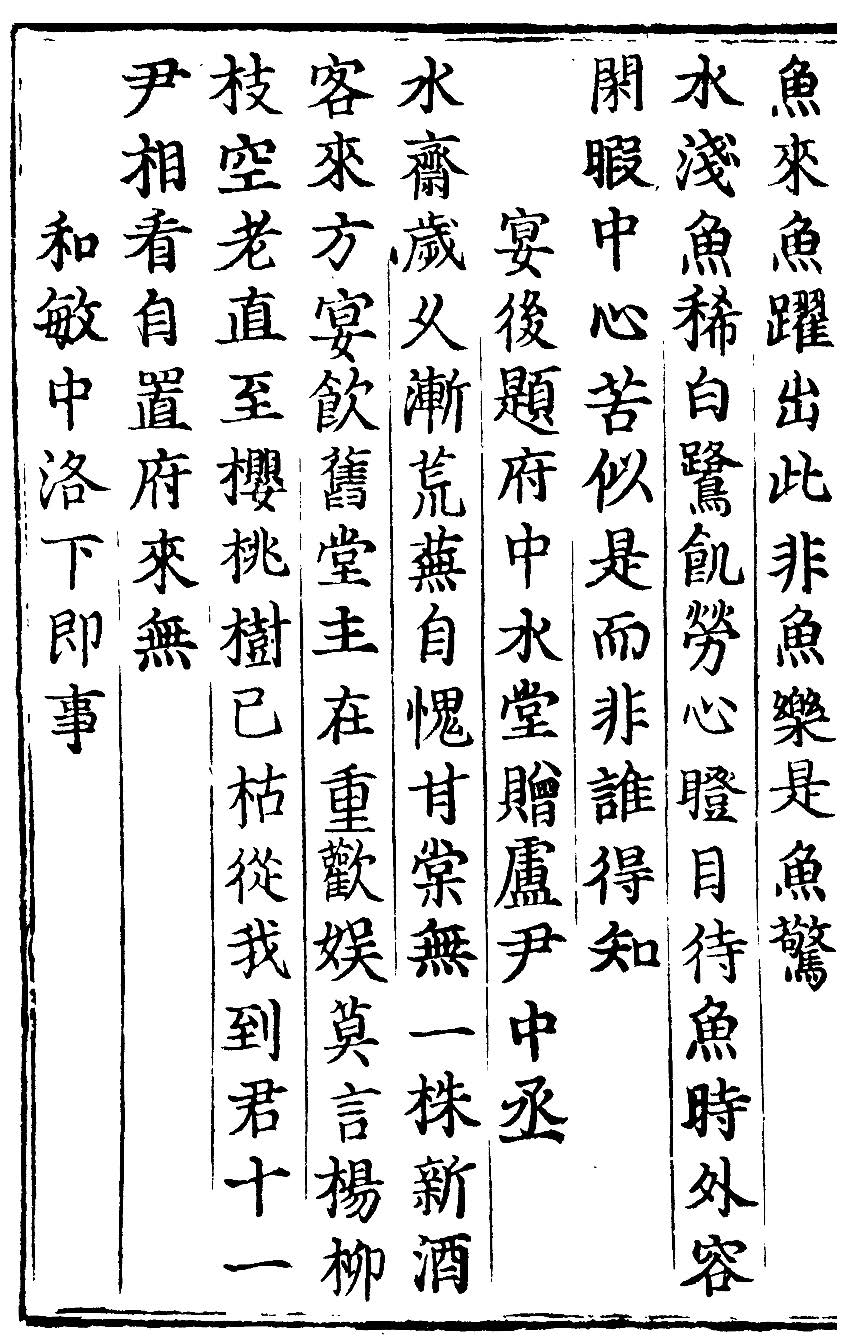 魚來魚躍出此非魚樂是魚驚
水淺魚稀白鷺飢勞心瞪目待魚時外容
閑暇中心苦似是而非誰得知
宴後題府中水堂贈盧尹中丞
水齋歲乆漸荒蕪自愧甘棠無一株新酒
客來方宴飲舊堂主在重歡娛莫言楊柳
枝空老直至櫻桃樹已枯從我到君十一
尹相看自置府來無
和敏中洛下即事